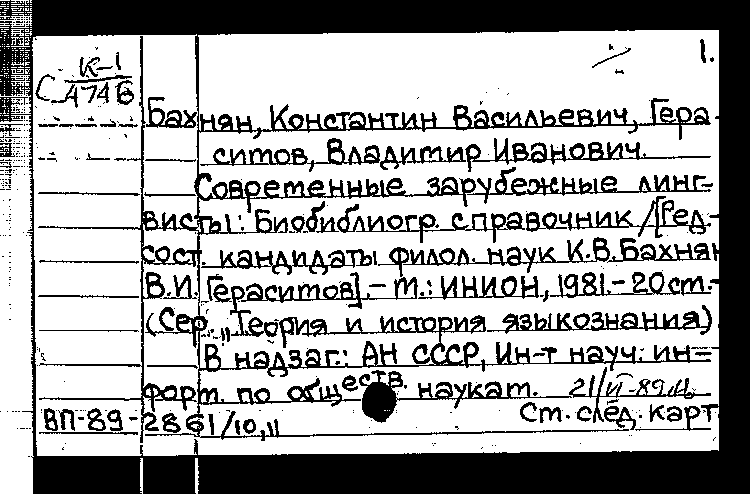 1.
К-1
С 474б
Бахнян, Константин Васильевич, Гера-
ситов, Владимир Иванович.
Современные зарубежные линг-
висты: Биобиблиогр. справочник /[Ред.-
сост. кандидаты филол. наук К.В.Бахнян
В.И. Герасимов].- М.: ИНИОН, 1981.- 20см.-
(Сер. „Теория и история языкознания)
В надзаг.: АН СССР, Ин-т науч. ин=
форм. по обществ. наукам. 21/VI-89
ВП-89-2861/10,11
См. след. карт